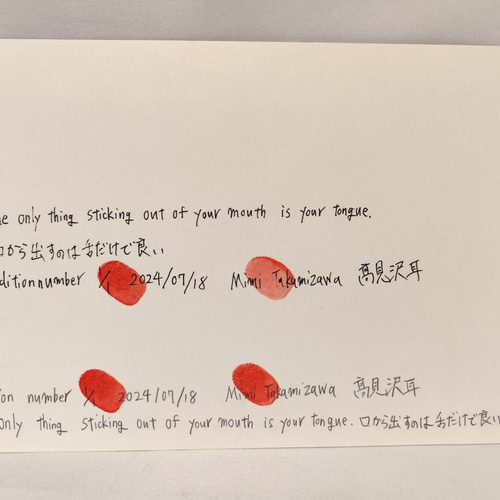 e only thing sticking out of your mouth is your tongue.
口から出すのは舌だけで良い
dition number 1/1 2024/07/18 Mimi Takamizawa 髙見沢耳
ion number 1/1 2024/07/18 Mimi Takamizawa 髙見沢耳
only thing sticking out of your mouth is your tongue. 口から出すのは舌だけで良い